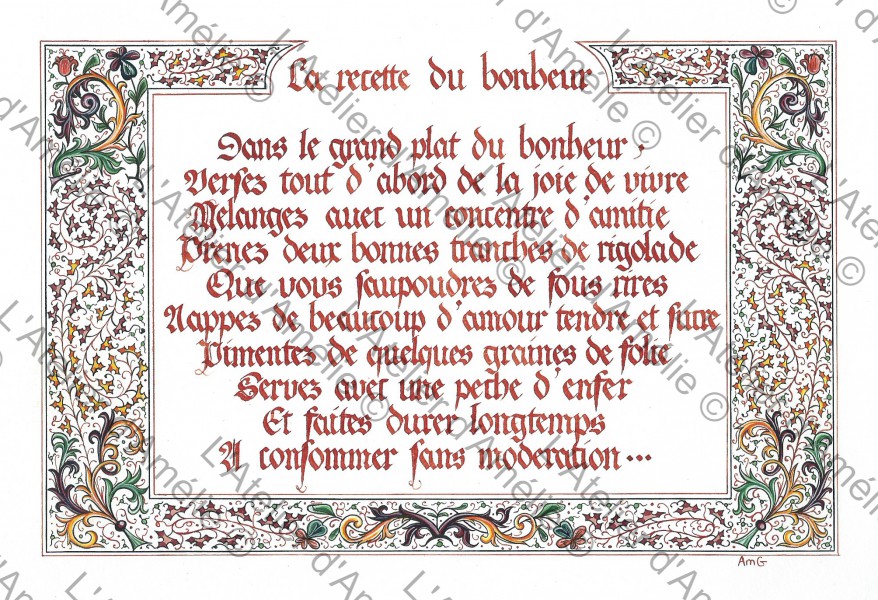 La recette du bonheur
Dans le grand plat du bonheur,
Versez tout d'abord de la joie de vivre
Melangez avec un concentre d'amitie
Prenez deux bonnes tranches de rigolade
Que vous saupoudrez de fous rires
Nappez de beaucoup d'amour tendre et sucre
Pimentez de quelques graines de folie
Servez avec une peche d'enfer
Et faites durer longtemps
A consommer sans moderation...
AmG
L'Atelier d'Amélie ©